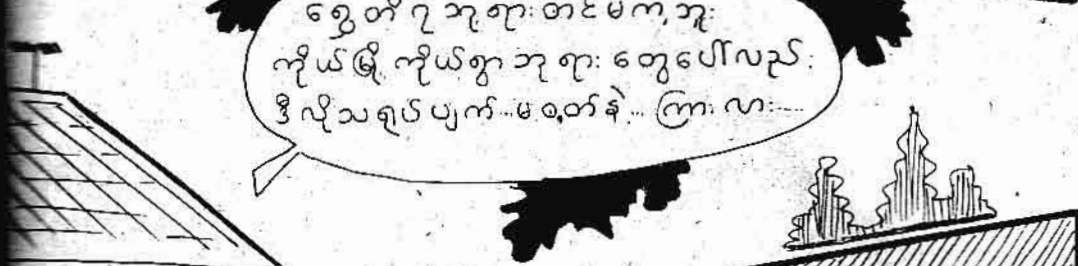 ရွှေတိဂုံဘုရားတင်မကဘူး
ကိုယ်မြို့ ကိုယ်ရွာဘုရားတွေပေါ်လည်း
ဒီလိုသရုပ်ပျက်...မဝတ်နဲ့... ကြားလား.....